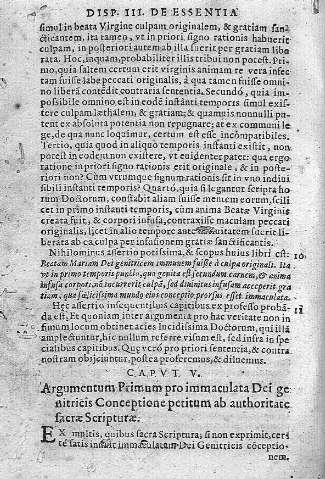 DISP. III. DE ESSENTIA
simul in beata Virgine culpam originalem, & gratiam san
dicantem, ita tamen, vt in priori signo rationis habuerit
culpam, in posteriori autem ab illa fuerit per gratiam libe
rata. Hoc, inquam, probabiliter illis tribui non potest. Pri
mo, quia saltem certum erit virginis animam re vera infe
ctam fuisse labe peccati originalis, à qua tamen fuisse omni
no liberā contēdit contraria sententia. Secundó, quia im
possibile omnino est in eodē instanti temporis simul exi
stere culpam læthalem, & gratiam; & quamuis nonnulli pu
tent ex absoluta potentia non repugnare; at ex communi le
ge, de qua nunc loquimur, certum est esse incōpatibiles.
Tertio, quia quod in aliquo temporis instanti existit, non
potest in eodem non existere, vt euidenter patet: qua ergo
ratione in priori signo rationis erit originale, & in posterio
ri non? Cùm vtrumque signum rationis sit in vno indiui
sibili instanti temporis? Quartó, quia si legantur scripta ho
rum Doctorum, constabit aliam fuisse mentem eorum, scili
cet in primo instanti temporis, cùm anima Beatæ Virginis
creata fuit, & corpori infusa, contraxisse maculam peccati
originalis, licet in alio tempore ante natiuitatem fuerit li
berata ab ea culpa per infusionem gratiæ sanctificantis.
Nihilominus assertio potissima, & scopus huius libri est: 10
Beatam Mariam Dei genitricem immunem fuisse à culpa originali. Ita
vt in primo temporis puncto, quo genita est secundum carnem, et anima
infusa corpori, nō incurrerit culpā, sed diuinitus infusam acceperit gra
tiam, quæ felicissima mundo eius conceptio prorsus extit immaculata.
Hæc assertio insequentibus capitibus ex professo probā 11
da est, Et quoniam inter argumenta pro hac veritate non in
fimum locum obtinet acies lucidissima Doctorum, qui illā
amplectuntur, hic nullum referre visum est, sed infra in spe
cialibus capitibus. Quæ verò pro priori sententia, & contra
nostram obijciuntur, postea proferemus, & diluemus.
CAPVT. V.
Argumentum Primum pro immaculata Dei ge
nitricis Conceptione petitum ab authoritate
sacræ Scripturæ.
EX multis, quibus sacra Scriptura, si non exprimit, cer
tè satis insinuit immaculatam Dei Genitricis cōceptio-
nem,